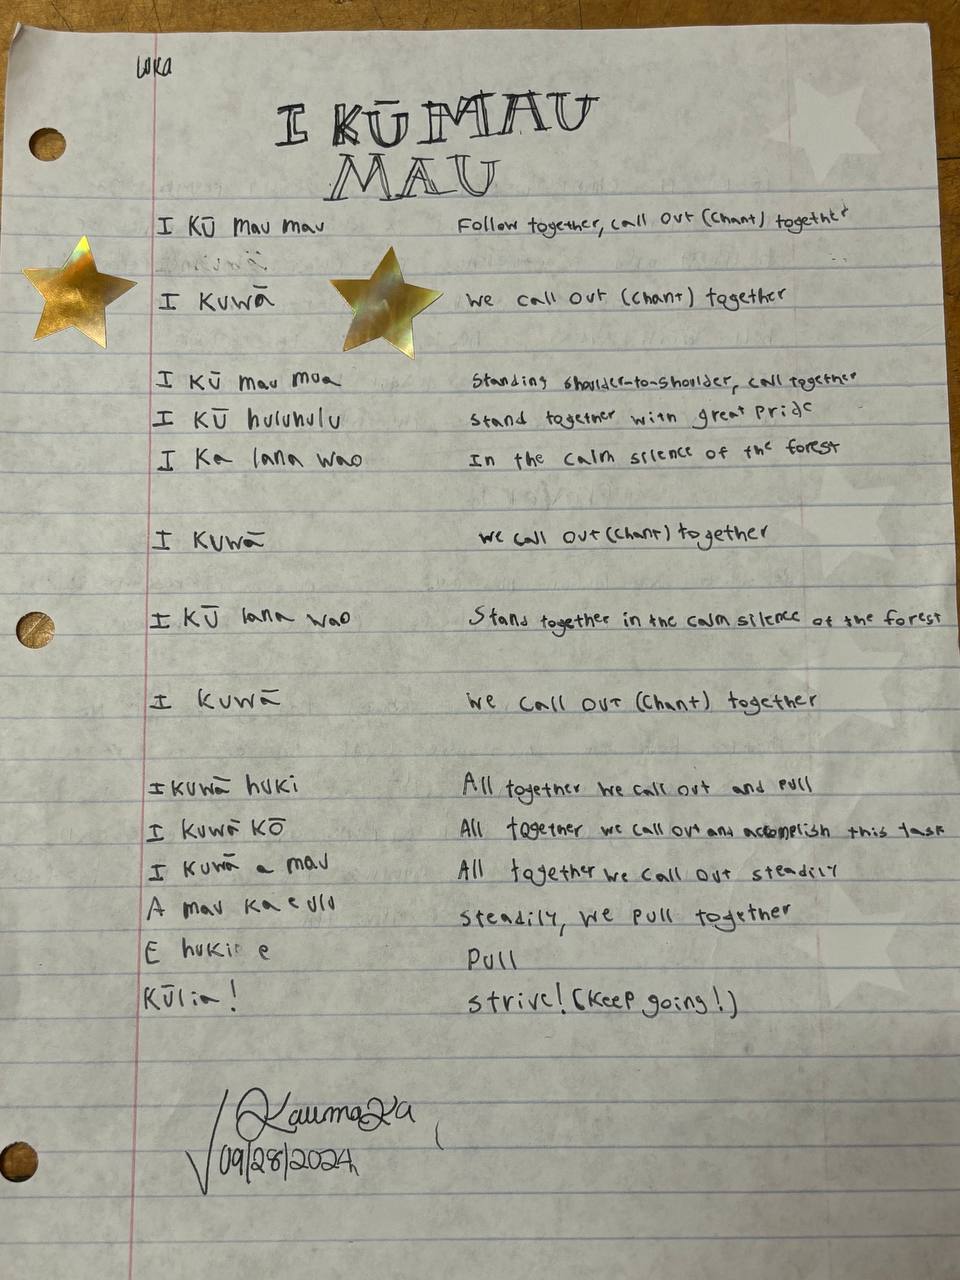 Loka
I KŪ MAU
MAU
I KŪ mau mau Follow together, call out (Chant) together
I Kuwā We call out (Chant) together
I KŪ mau moa Standing shoulder-to-shoulder, call together
I KŪ huluhulu Stand together with great Pride
I Ka lana wao In the calm silence of the forest
I Kuwā we call out (Chant) together
I KŪ lana wao Stand together in the calm silence of the forest
I Kuwā We call out (Chant) together
I Kuwā huki All together we call out and pull
I Kuwā KŌ All together we call out and accomplish this task
I Kuwā a mau All together we call out steadily
A mau Ka e ulu steadily, we pull together
E huki e Pull
KŪlia! Strive! (Keep going!)
Kaumaka
09/28/2024